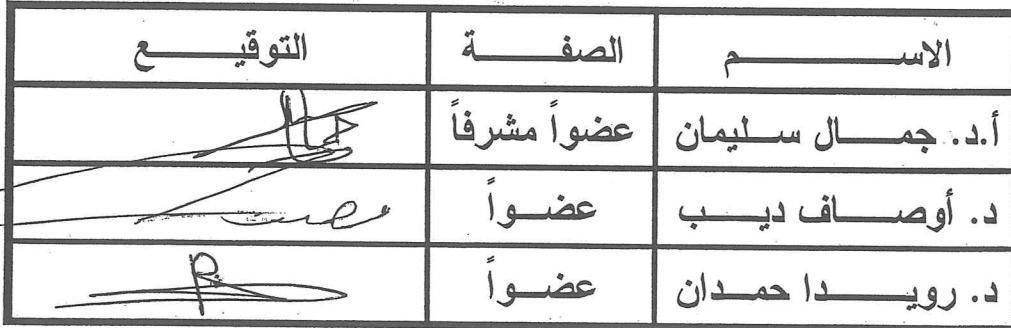 الاسم الصفة التوقيع
أ.د. جمال سليمان عضواً مشرفاً
د. أوصاف ديب عضواً
د. رويدا حمدان عضواً